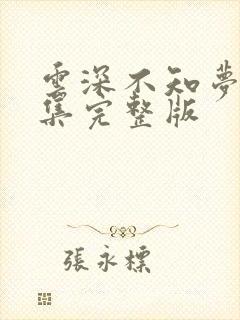 雲深不知夢
集完整版
張永標